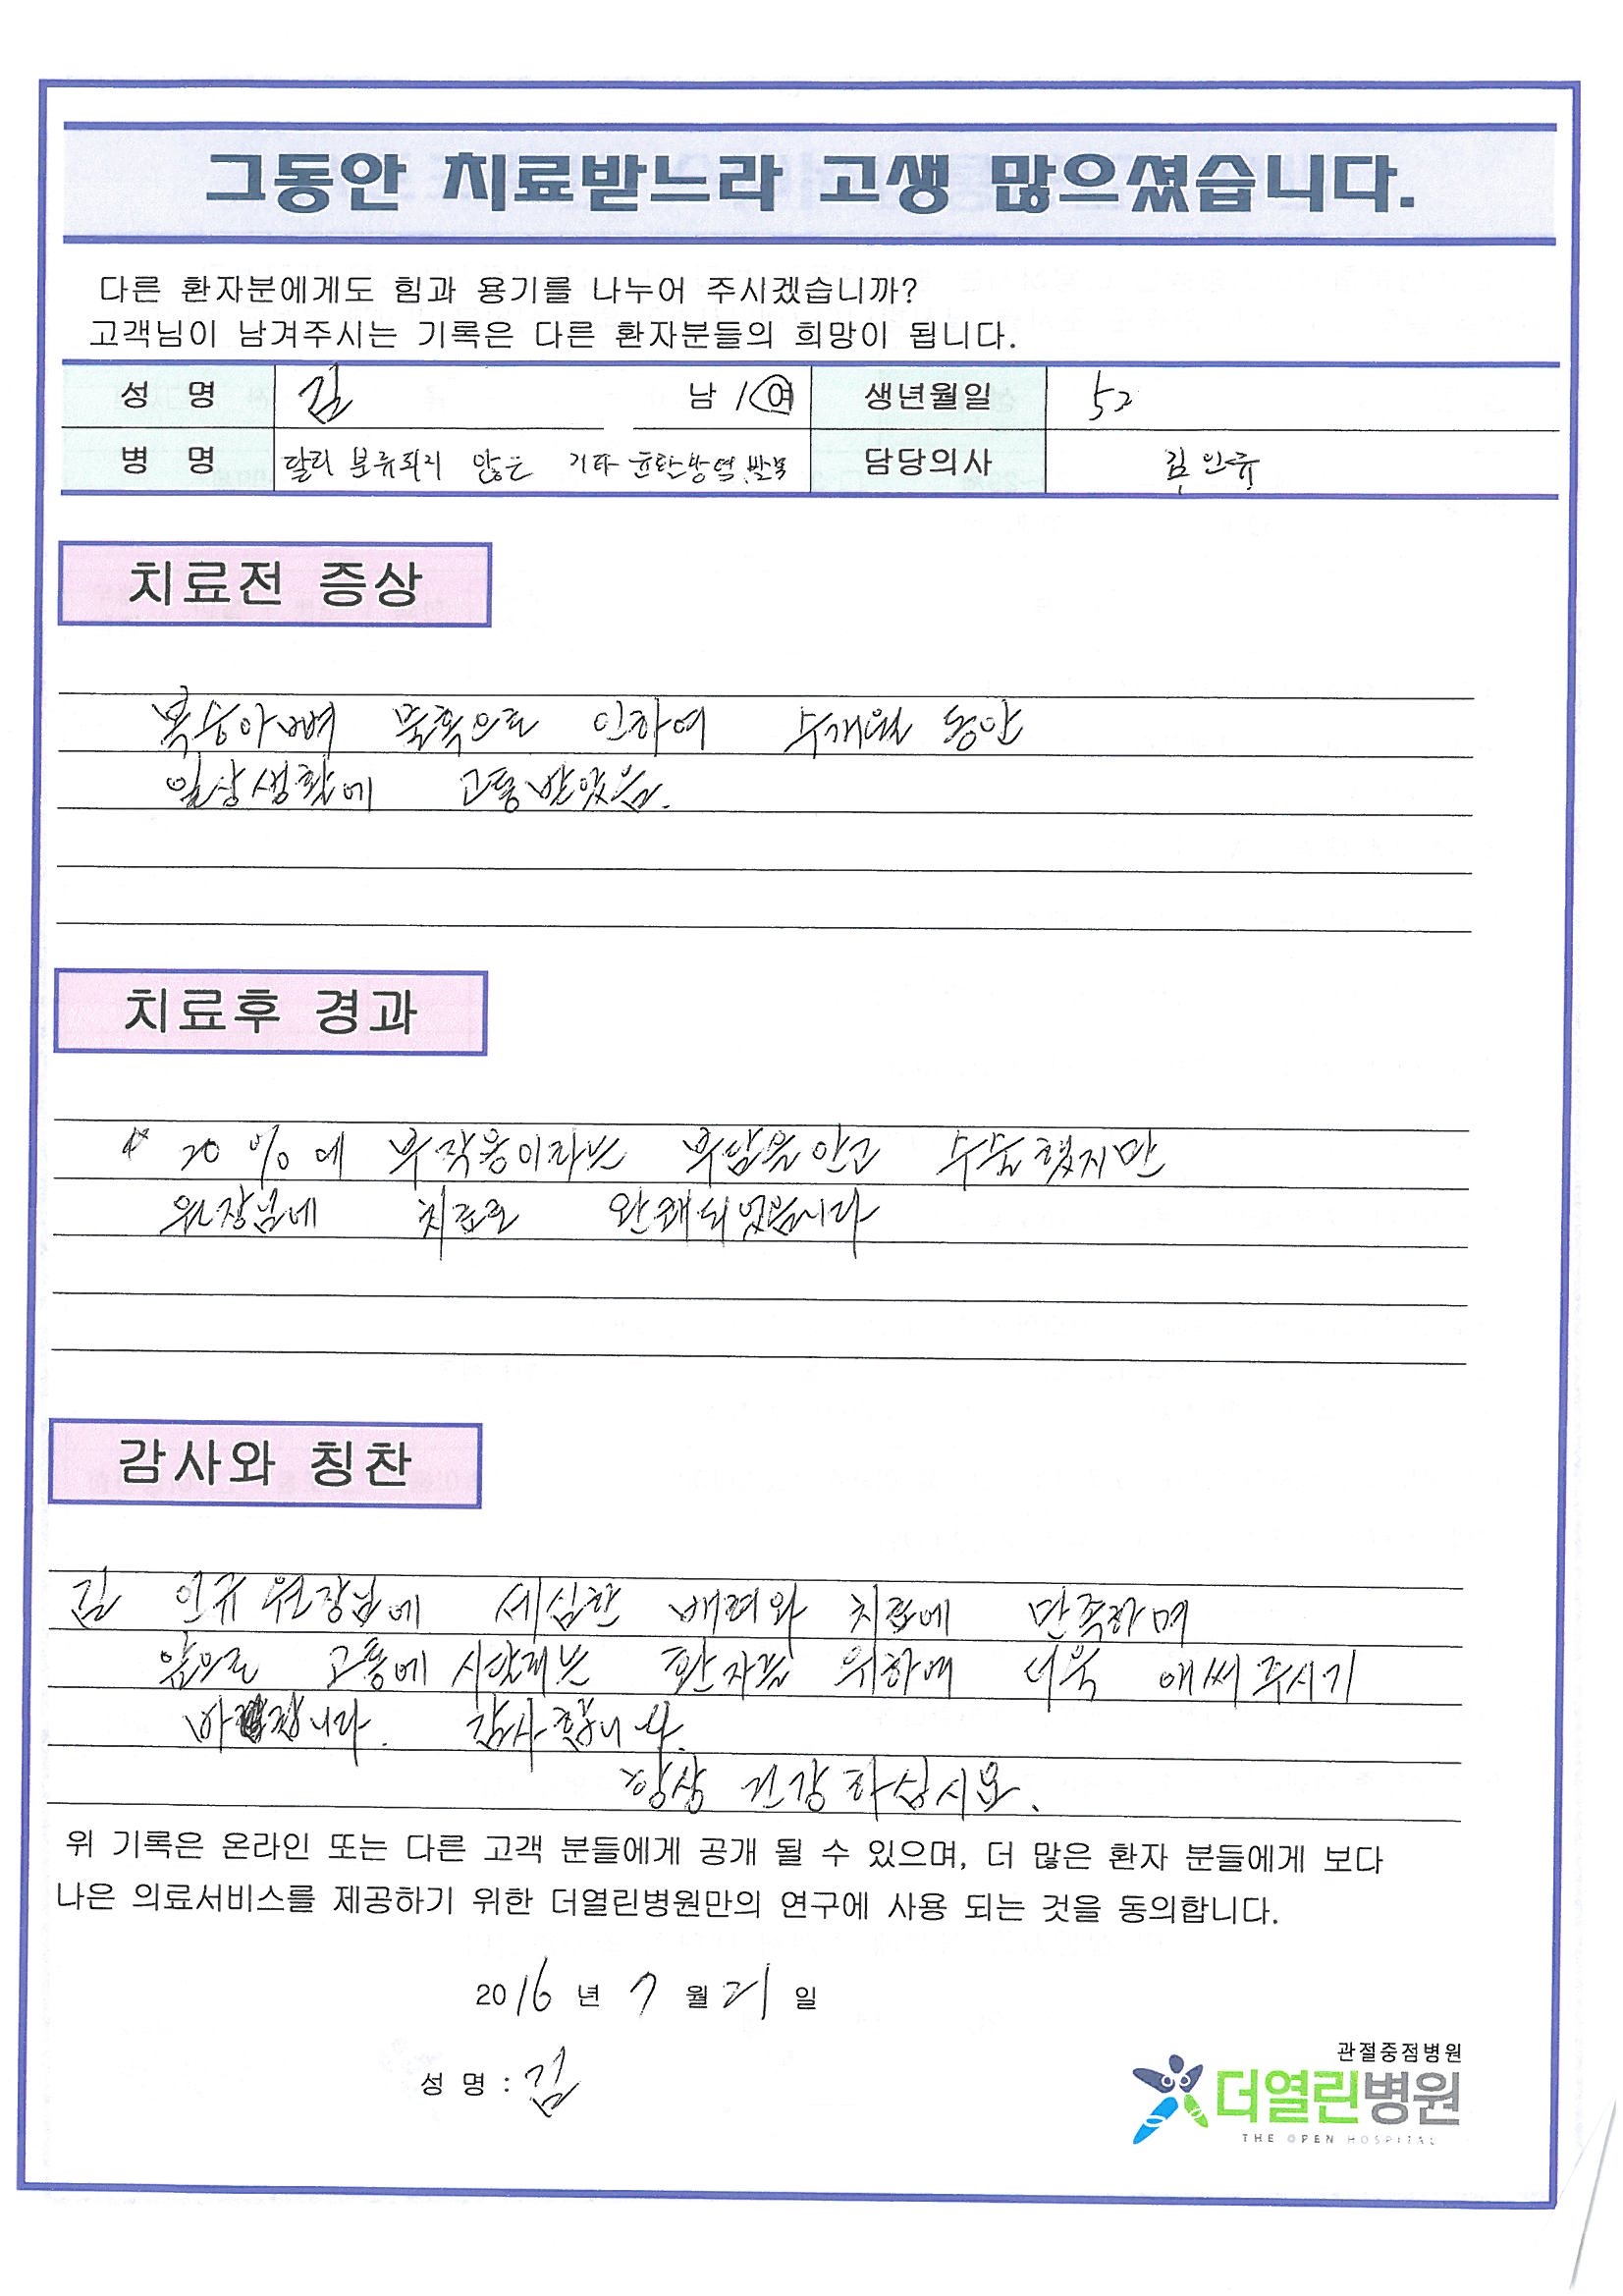 그동안 치료받느라 고생 많으셨습니다.
다른 환자분에게도 힘과 용기를 나누어 주시겠습니까?
고객님이 남겨주시는 기록은 다른 환자분들의 희망이 됩니다.
성 명 김 남 / 여 생년월일 52
병 명 달리 분류되지 않은 기타 윤활낭염, 발목 담당의사 김인규
치료전 증상
복숭아뼈 물혹으로 인하여 수개월 동안
일상생활에 고통받았음.
치료후 경과
20%에 부작용이라는 부담을 안고 수술했지만
원장님에 치료로 완쾌되었습니다
감사와 칭찬
김 인규 원장님에 세심한 배려와 치료에 만족하며
앞으로 고통에 시달리는 환자를 위하여 더욱 애써 주시기
바랍니다. 감사합니다.
항상 건강하십시요.
위 기록은 온라인 또는 다른 고객 분들에게 공개 될 수 있으며, 더 많은 환자 분들에게 보다
나은 의료서비스를 제공하기 위한 더열린병원만의 연구에 사용 되는 것을 동의합니다.
2016 년 7 월 21 일
성 명 : 김
관절중점병원
더열린병원
THE OPEN HOSPITAL